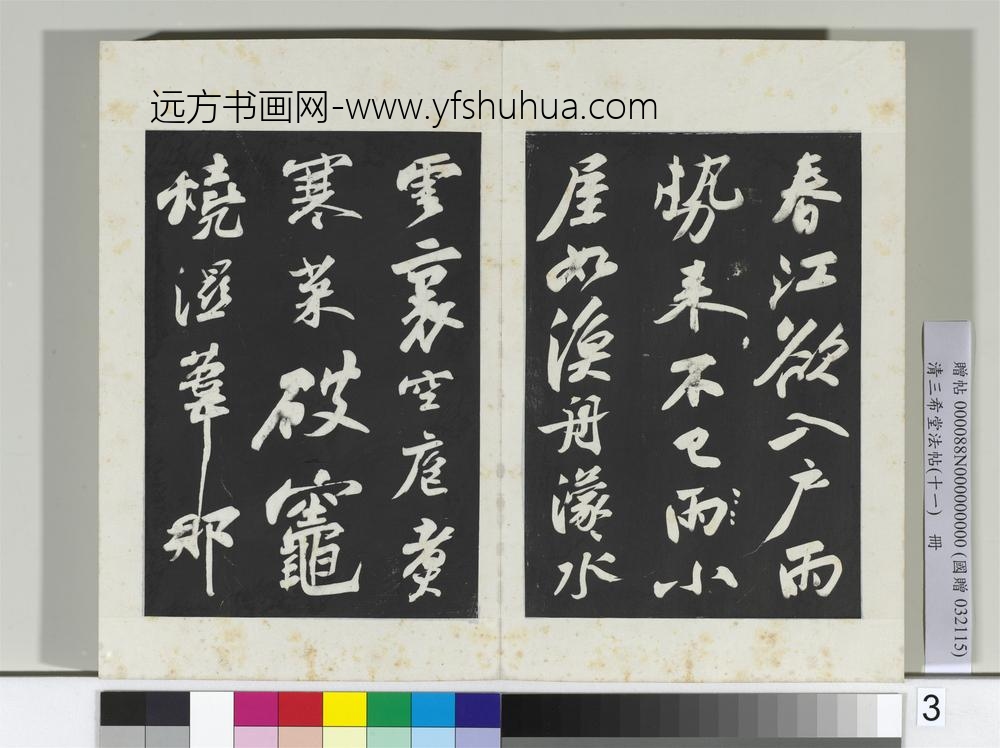 远方书画网-www.yfshuhua.com
春江欲入户雨
势来不已雨小
屋如渔舟濛〻水
雲裏空庖煮
寒菜破竈
燒濕葦那
贈帖 000088N000000000 (國贈 032115)
清三希堂法帖(十一) 冊
3